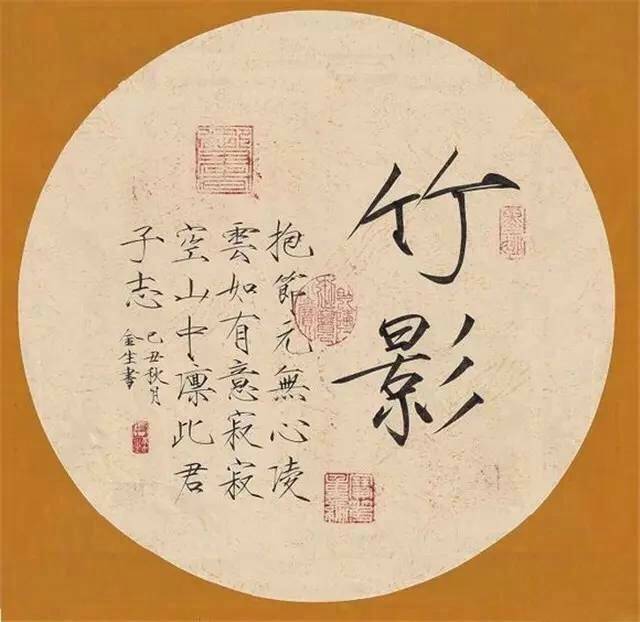 竹影
抱節元無心陵
雲如有意寂寂
空山中凛此君
子志
己丑秋月
金生書